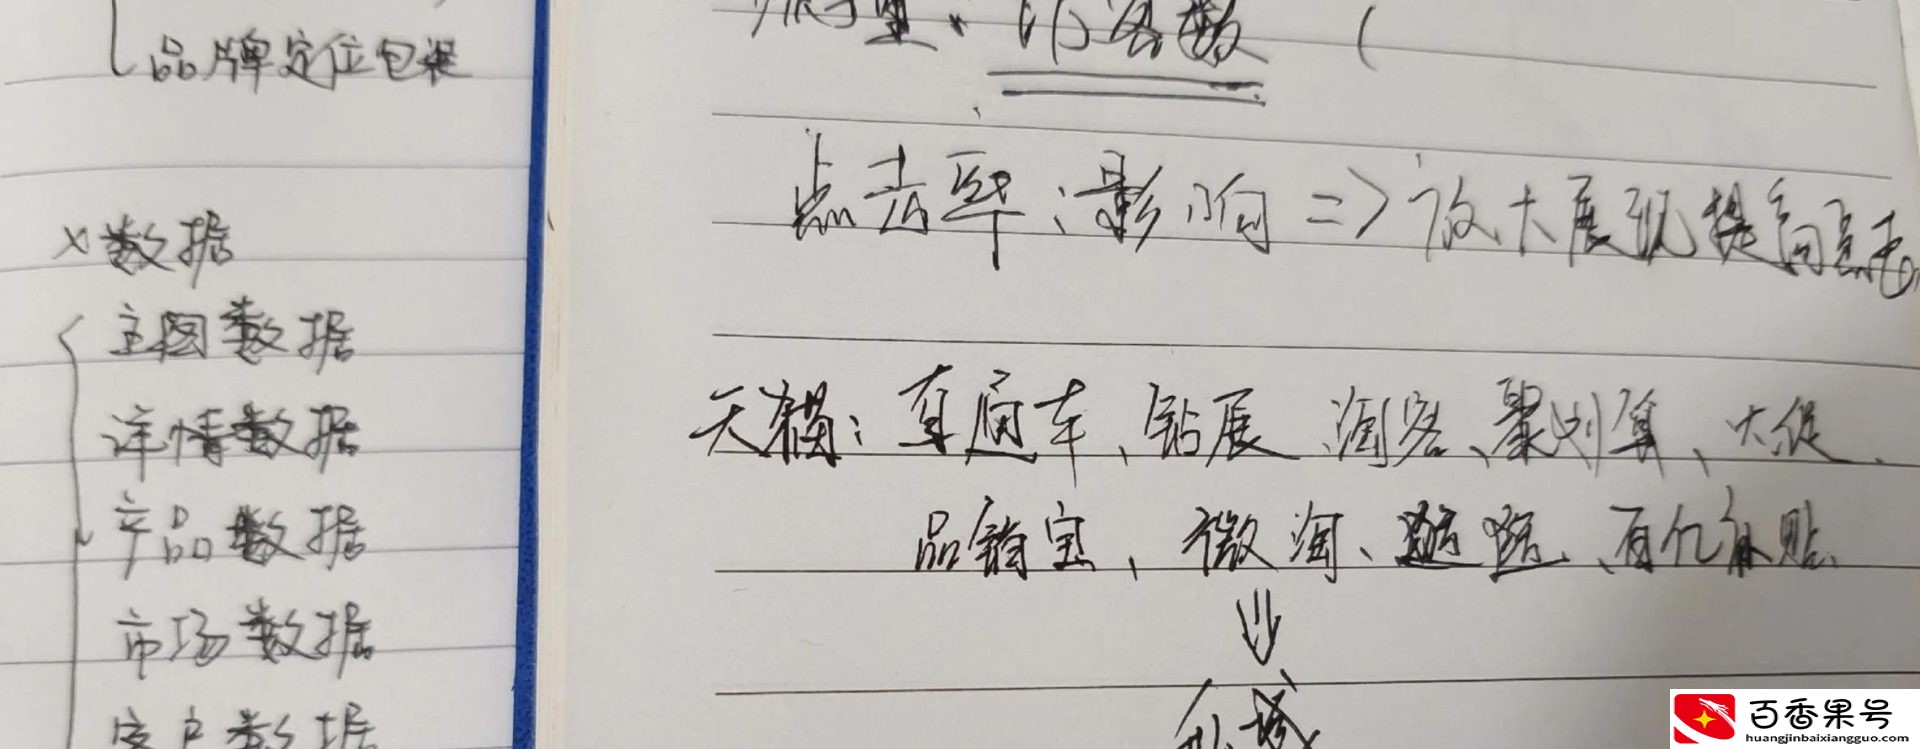 品牌定位包装
x数据
主图数据
详情数据
产品数据
市场数据
客户数据
访客数 (
点击率:影响=>放大展现提高
天猫:直通车、钻展、淘客、聚划算、大促、
品销宝、微淘、逛逛、百亿补贴、
⇓
私域
百香果号
huangjinbaixiangguo.com